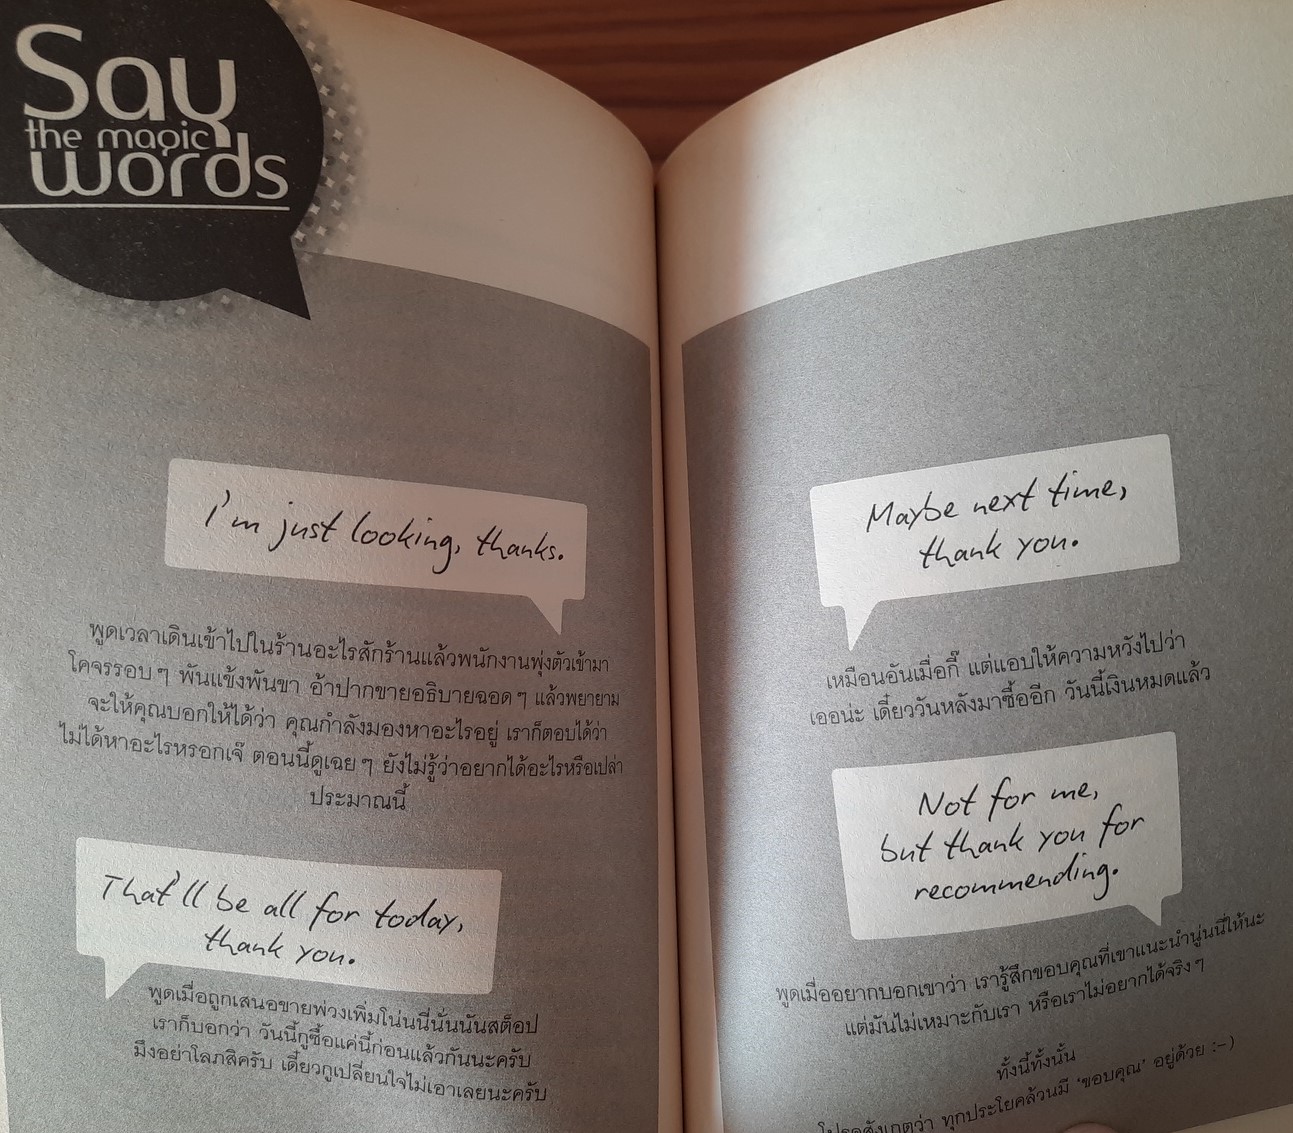 Say
the magic
words
I'm just looking, thanks.
พูดเวลาเดินเข้าไปในร้านอะไรสักร้านแล้วพนักงานพุ่งตัวเข้ามา
โคจรรอบๆ พันแข้งพันขา อ้าปากขายอธิบายฉอดๆ แล้วพยายาม
จะให้คุณบอกให้ได้ว่า คุณกำลังมองหาอะไรอยู่ เราก็ตอบได้ว่า
ไม่ได้หาอะไรหรอกเจ๊ ตอนนี้ดูเฉยๆ ยังไม่รู้ว่าอยากได้อะไรหรือเปล่า
ประมาณนี้
That'll be all for today,
thank you.
พูดเมื่อถูกเสนอขายพ่วงเพิ่มโน่นนี่นั่นนันสต็อป
เราก็บอกว่า วันนี้กูซื้อแค่นี้ก่อนแล้วกันนะครับ
มึงอย่าโลภสิครับ เดี๋ยวกูเปลี่ยนใจไม่เอาเลยนะครับ
Maybe next time,
thank you.
เหมือนอันเมื่อกี๊ แต่แอบให้ความหวังไปว่า
เออน่ะ เดี๋ยววันหลังมาซื้ออีก วันนี้เงินหมดแล้ว
Not for me,
but thank you for
recommending.
พูดเมื่ออยากบอกเขาว่า เรารู้สึกขอบคุณที่เขาแนะนำนู่นนี่ให้นะ
แต่มันไม่เหมาะกับเรา หรือเราไม่อยากได้จริงๆ
ทั้งนี้ทั้งนั้น
โปรดสังเกตว่า ทุกประโยคล้วนมี 'ขอบคุณ' อยู่ด้วย :-)